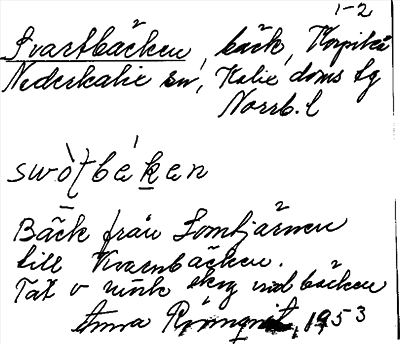 1-2
Svartbäcken, bäck, Korpikå
Nederkalix sn, Kalix doms lg
Norrb. l
Bäck från Lomtjärnen
till Kvarnbäcken.
Tät o mörk skog vid bäcken
Anna Rönnqvist, 1953